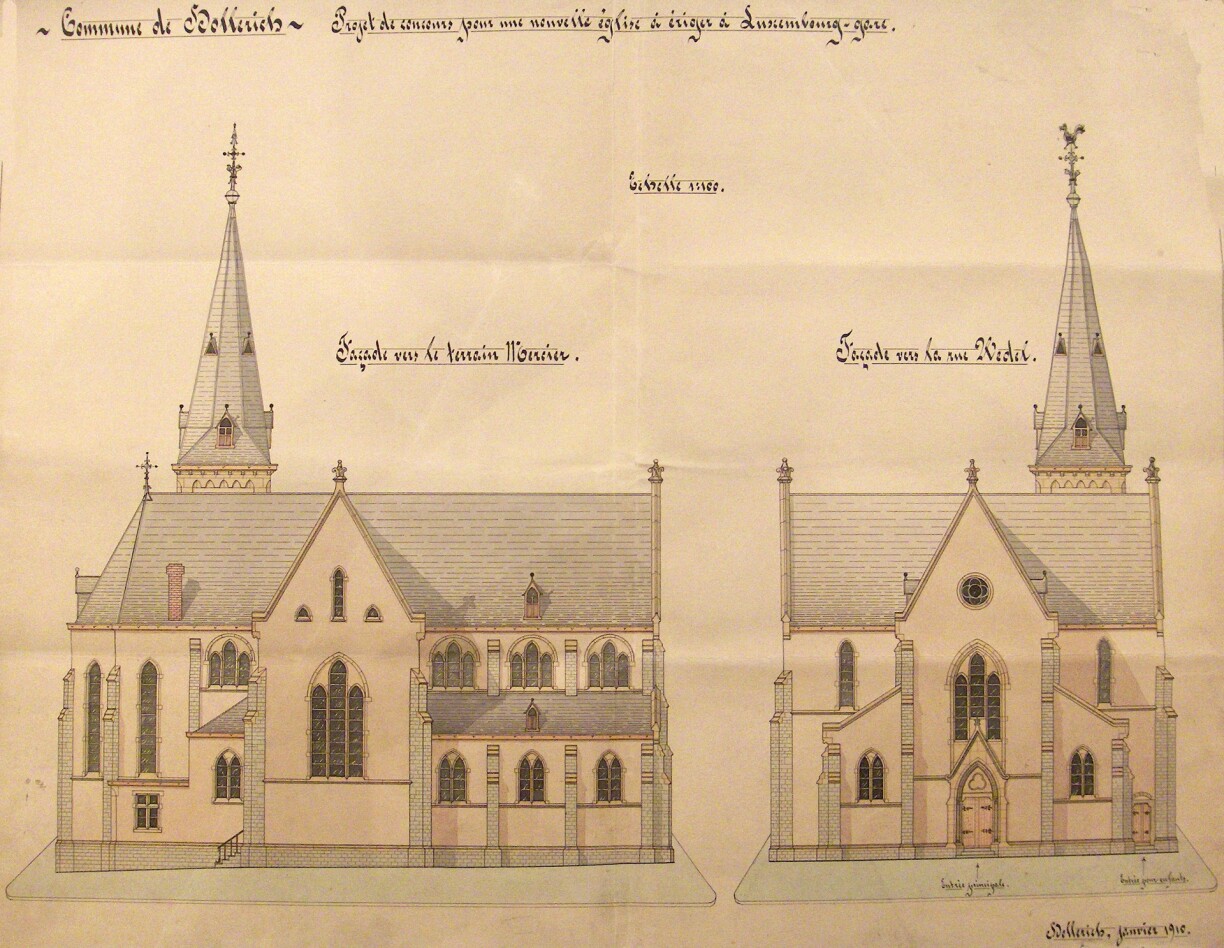 ~ Commune de Hollerich ~ Projet de concours pour une nouvelle église à ériger à Luxembourg-gare.
Echelle 1:100.
Façade vers le terrain Mercier.
Façade vers la rue Wedel.
Entrée principale.
Entrée pour enfants.
Hollerich, janvier 1910.